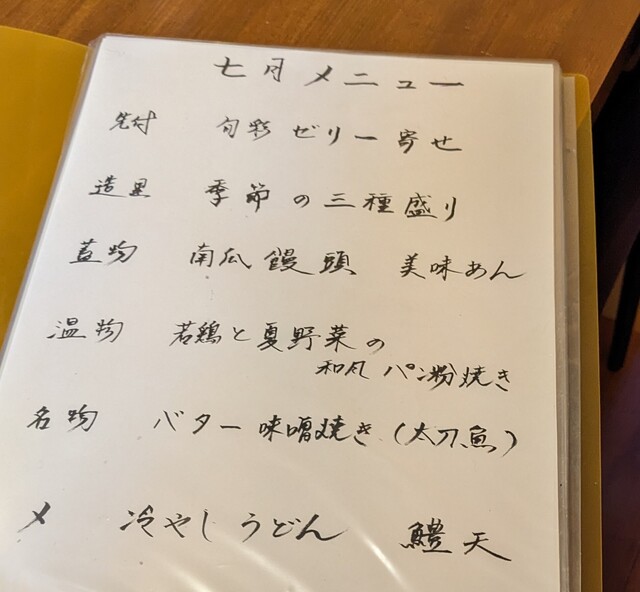 七月メニュー
先付 旬彩ゼリー寄せ
造里 季節の三種盛り
蓋物 南瓜饅頭 美味あん
温物 若鶏と夏野菜の
和風パン粉焼き
名物 バター味噌焼き(太刀魚)
〆 冷やしうどん 鱧天